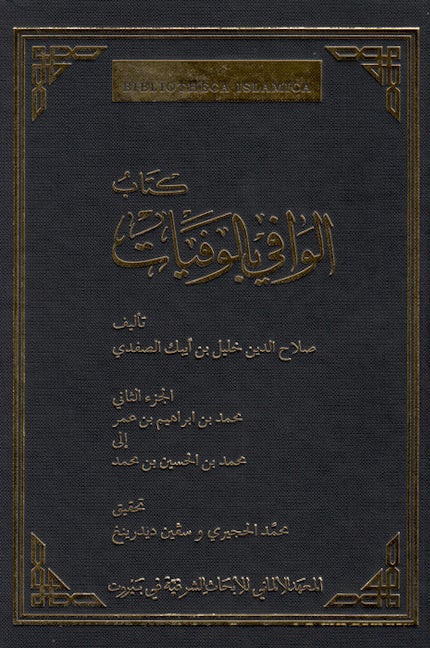 BIBLIOTHECA ISLAMICA
كتاب
الوافي بالوفيات
تأليف
صلاح الدين خليل بن أيبك الصفدي
الجزء الثاني
محمد بن ابراهيم بن عمر
إلى
محمد بن الحسين بن محمد
تحقيق
محمّد الحجيري و سڤين ديدرينغ
المعهد الالماني للأبحاث الشرقية في بيروت